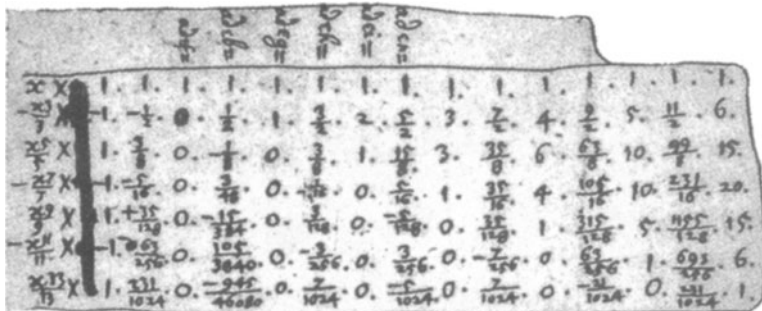 x × 1. 1. 1. 1. 1. 1. 1. 1. 1. 1. 1. 1. 1. 1. 1.
-x³/3 × -1. -1/2. 0. 1/2. 1. 3/2. 2. 5/2. 3. 7/2. 4. 9/2. 5. 11/2. 6.
x⁵/5 × 1. 3/8. 0. -1/8. 0. 3/8. 1. 15/8. 3. 35/8. 6. 63/8. 10. 99/8. 15.
-x⁷/7 × -1. -5/16. 0. 3/48. 0. -1/16. 0. 5/16. 1. 35/16. 4. 105/16. 10. 231/16. 20.
x⁹/9 × 1. +35/128. 0. -15/384. 0. 3/128. 0. -5/128. 0. 35/128. 1. 315/128. 5. 1155/128. 15.
-x¹¹/11 × -1. -63/256. 0. 105/3840. 0. -3/256. 0. 3/256. 0. -7/256. 0. 63/256. 1. 693/256. 6.
x¹³/13 × 1. 231/1024. 0. -945/46080. 0. 7/1024. 0. -5/1024. 0. 7/1024. 0. -21/1024. 0. 231/1024. 1.